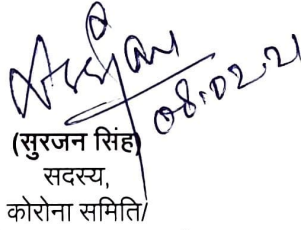 08.02.21
(सुरजन सिंह)
सदस्य,
कोरोना समिति/